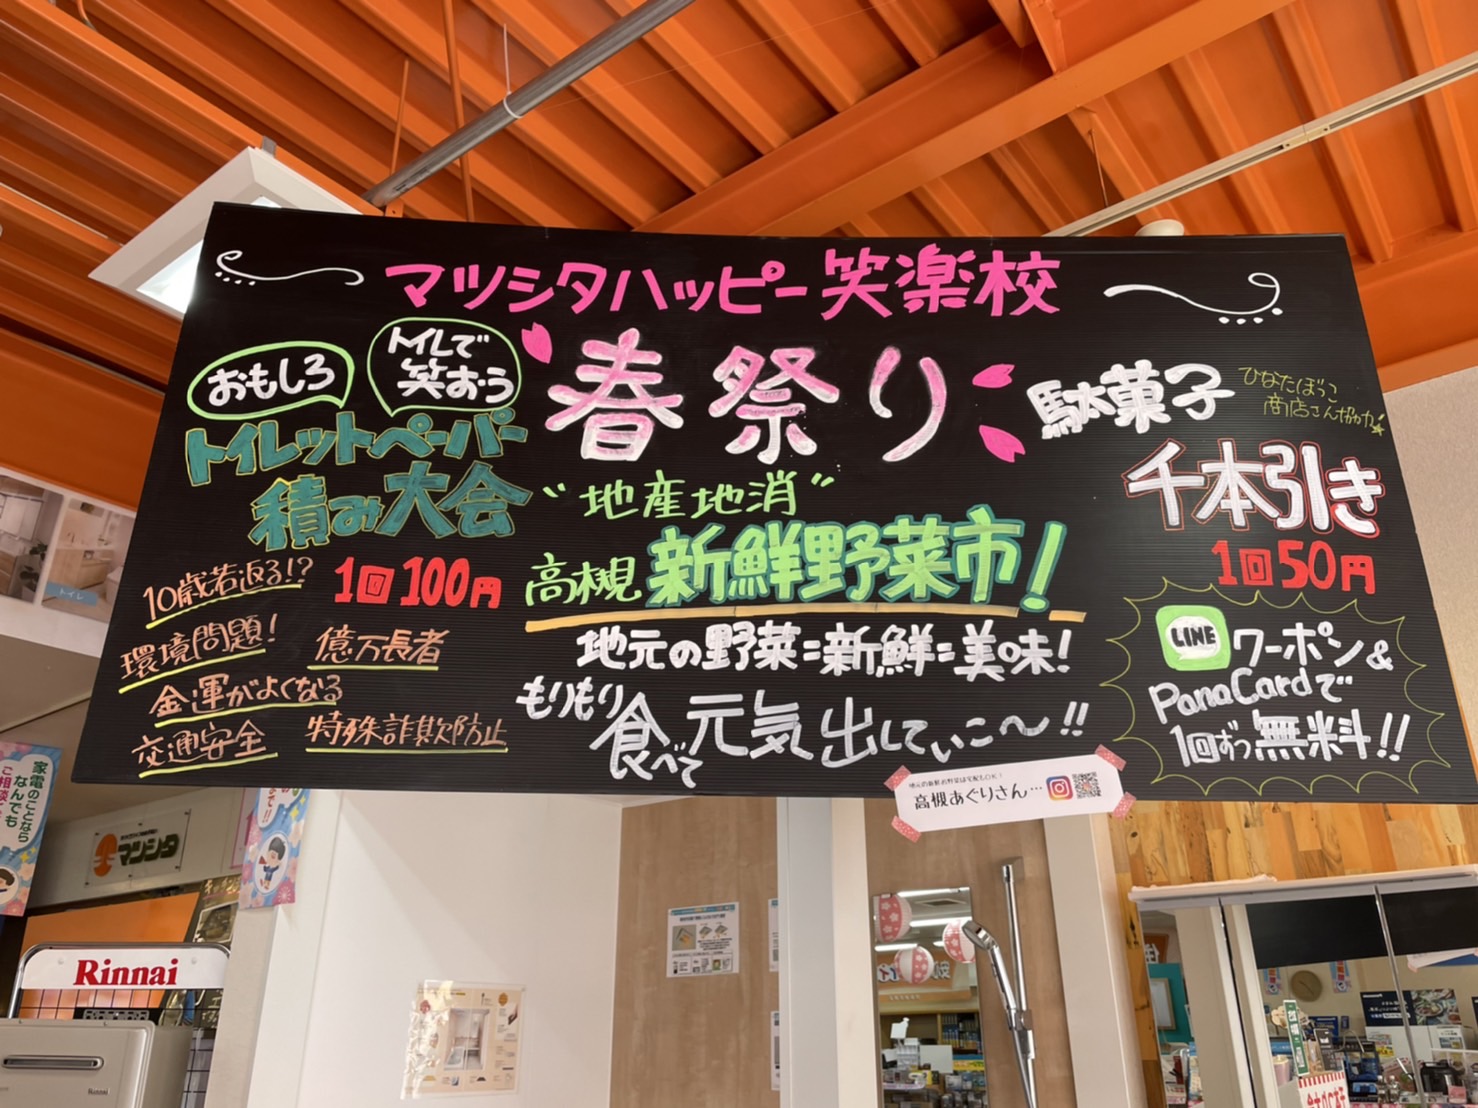 マツシタハッピー笑楽校
春祭り
おもしろ
トイレで
笑おう
トイレットペーパー
積み大会
1回100円
10歳若返る!?
環境問題!
億万長者
金運がよくなる
交通安全
特殊詐欺防止
"地産地消"
高槻 新鮮野菜市!
地元の野菜=新鮮=美味!
もりもり
食べて 元気出していこ〜!!
駄菓子
ひなたぼっこ
商店さん協力
千本引き
1回50円
LINE クーポン&
PanaCardで
1回ずつ無料!!
高槻あぐりさん…
家電のことなら
なんでも
マツシタ
Rinnai
Rinnai
トイレ